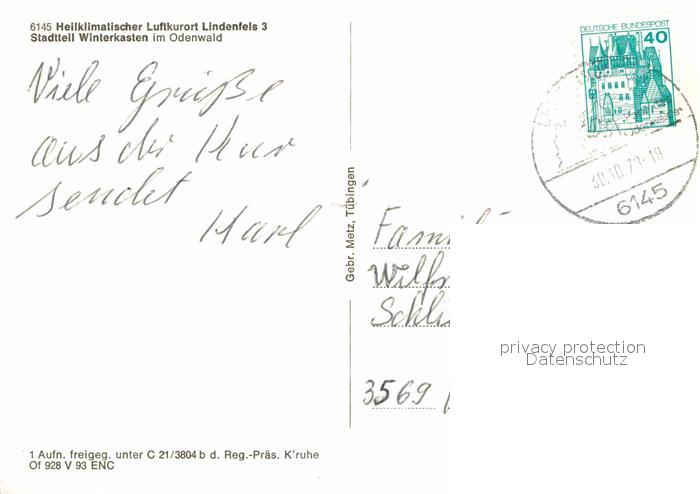 6145 Heilklimatischer Luftkurort Lindenfels 3
Stadtteil Winterkasten im Odenwald
Viele Grüße
aus der Kur
sendet
Karl
Gebr. Metz, Tübingen
DEUTSCHE BUNDESPOST
40
30.10.79-18
6145
Famil
Wilf
Schli
3569
privacy protection
Datenschutz
1 Aufn. freigeg. unter C 21/3804 b d. Reg.-Präs. K'ruhe
Of 928 V 93 ENC